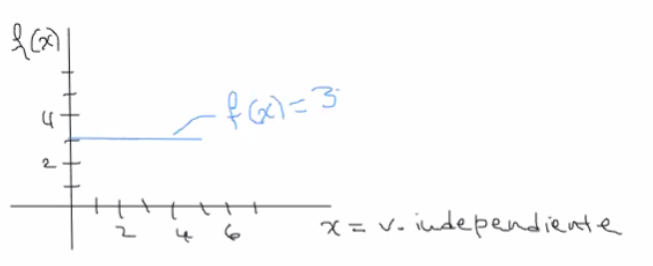 f(x)
f(x)=3
4
2
2 4 6
x = v. independiente